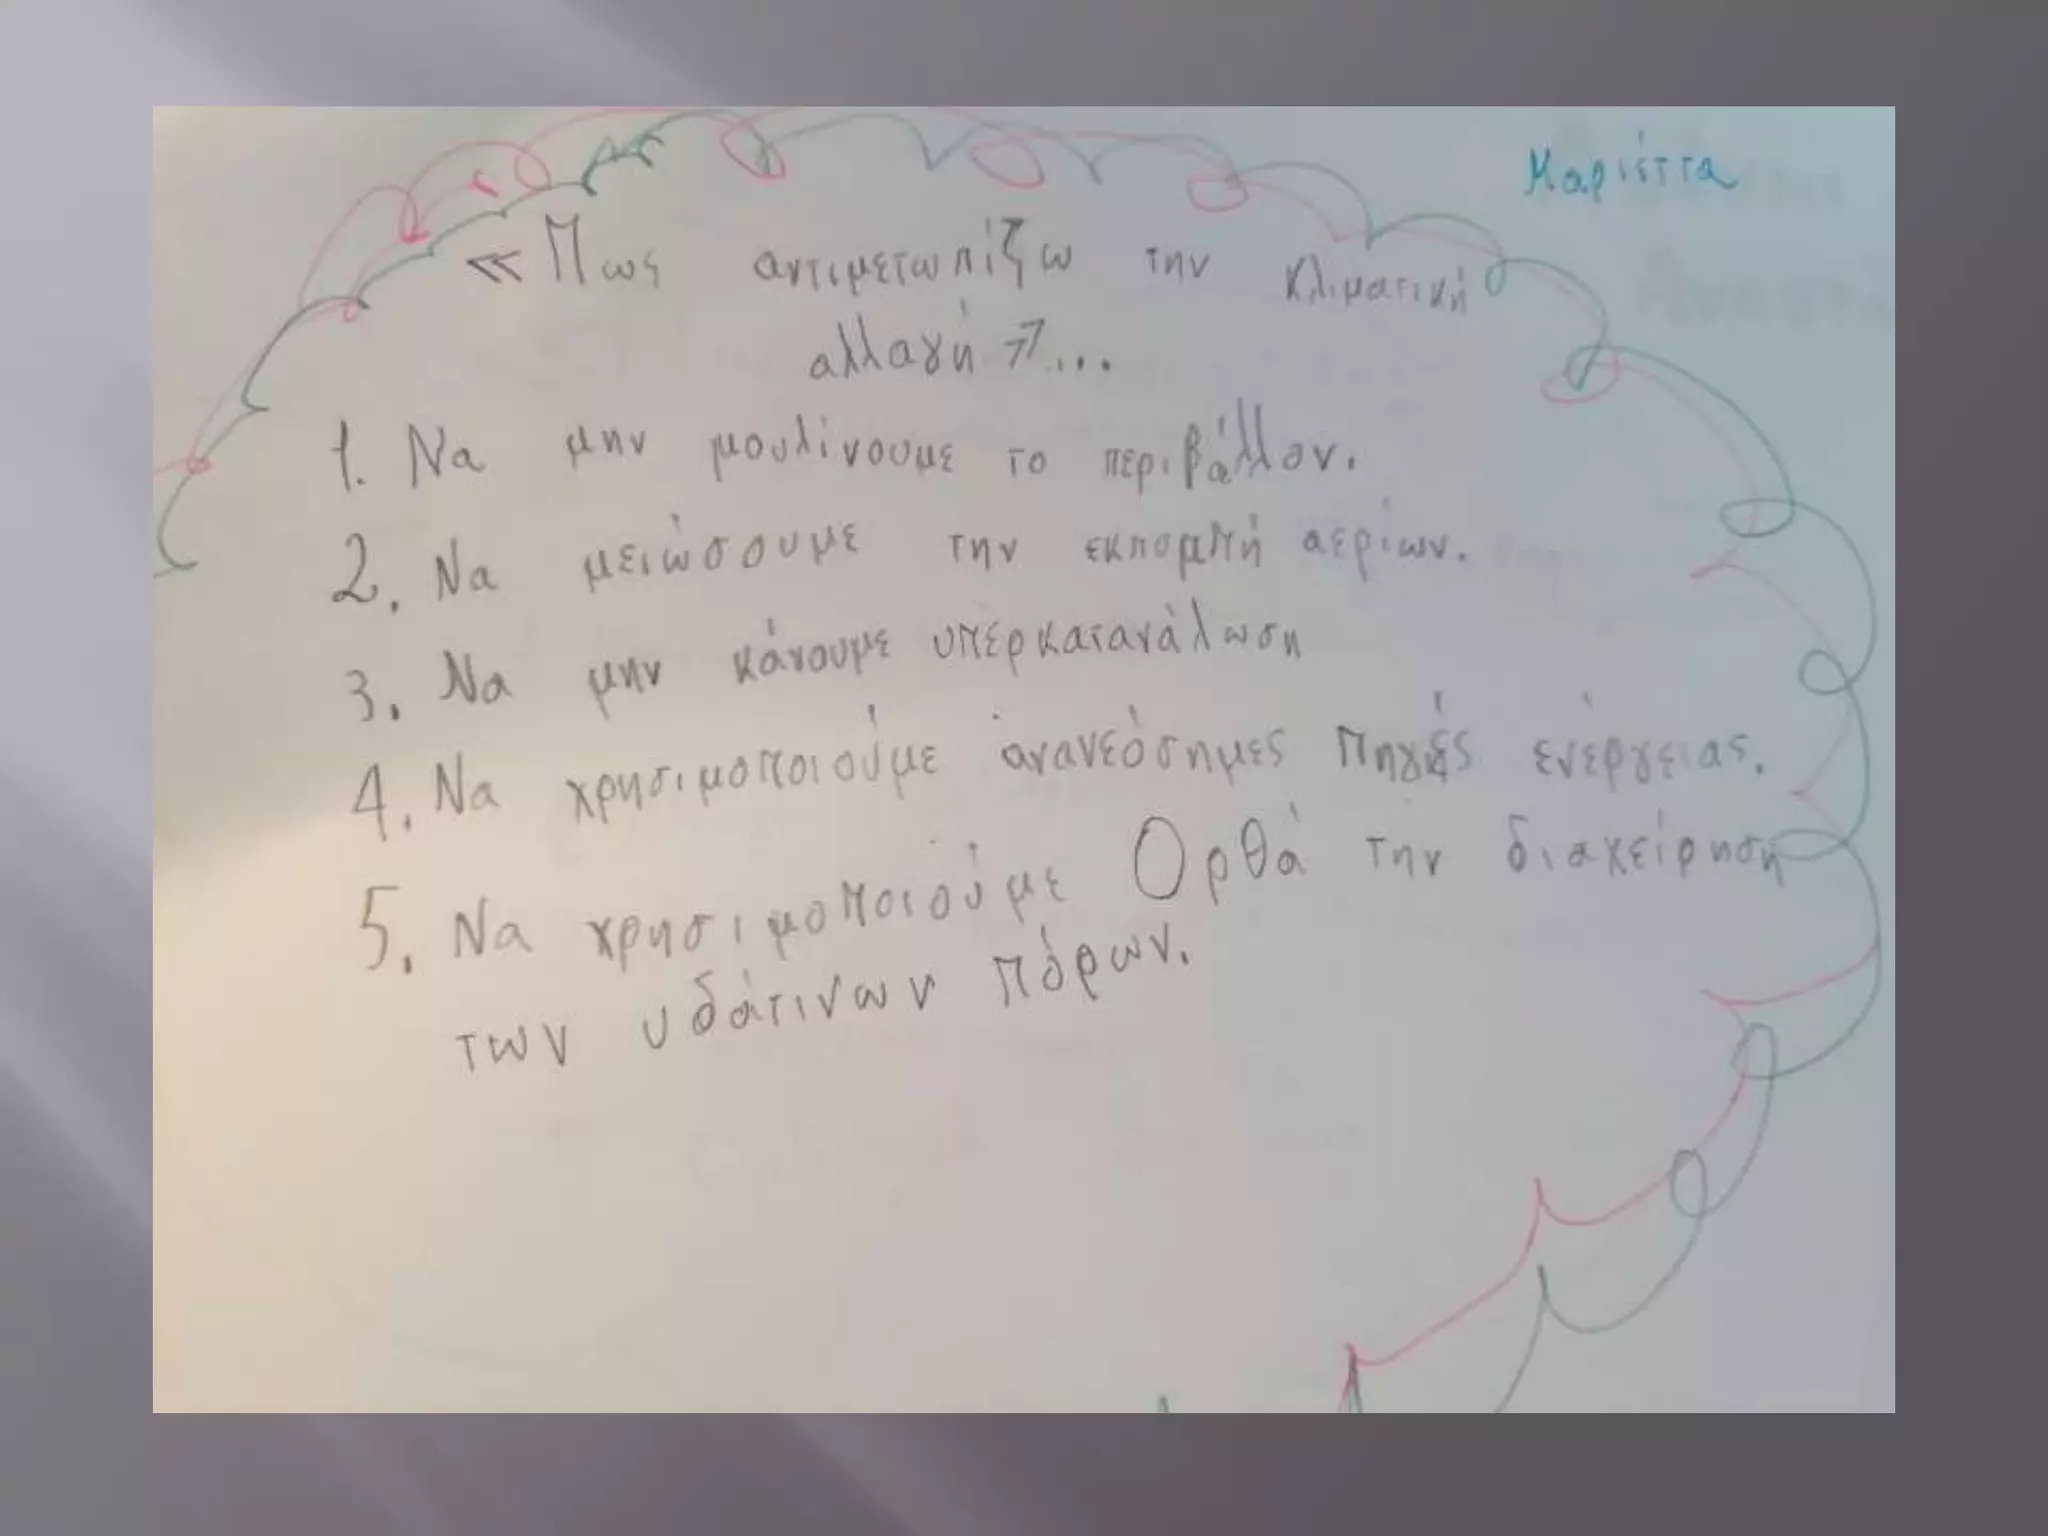 Μαριέττα
«Πως αντιμετωπίζω την κλιματική
αλλαγή»...
1. Να μην μουλίνουμε το περιβάλλον.
2. Να μειώσουμε την εκπομπή αερίων.
3. Να μην κάνουμε υπερκατανάλωση
4. Να χρησιμοποιούμε ανανεόσημες πηγές ενέργειας.
5. Να χρησιμοποιούμε Ορθά την διαχείρηση
των υδάτινων πόρων.